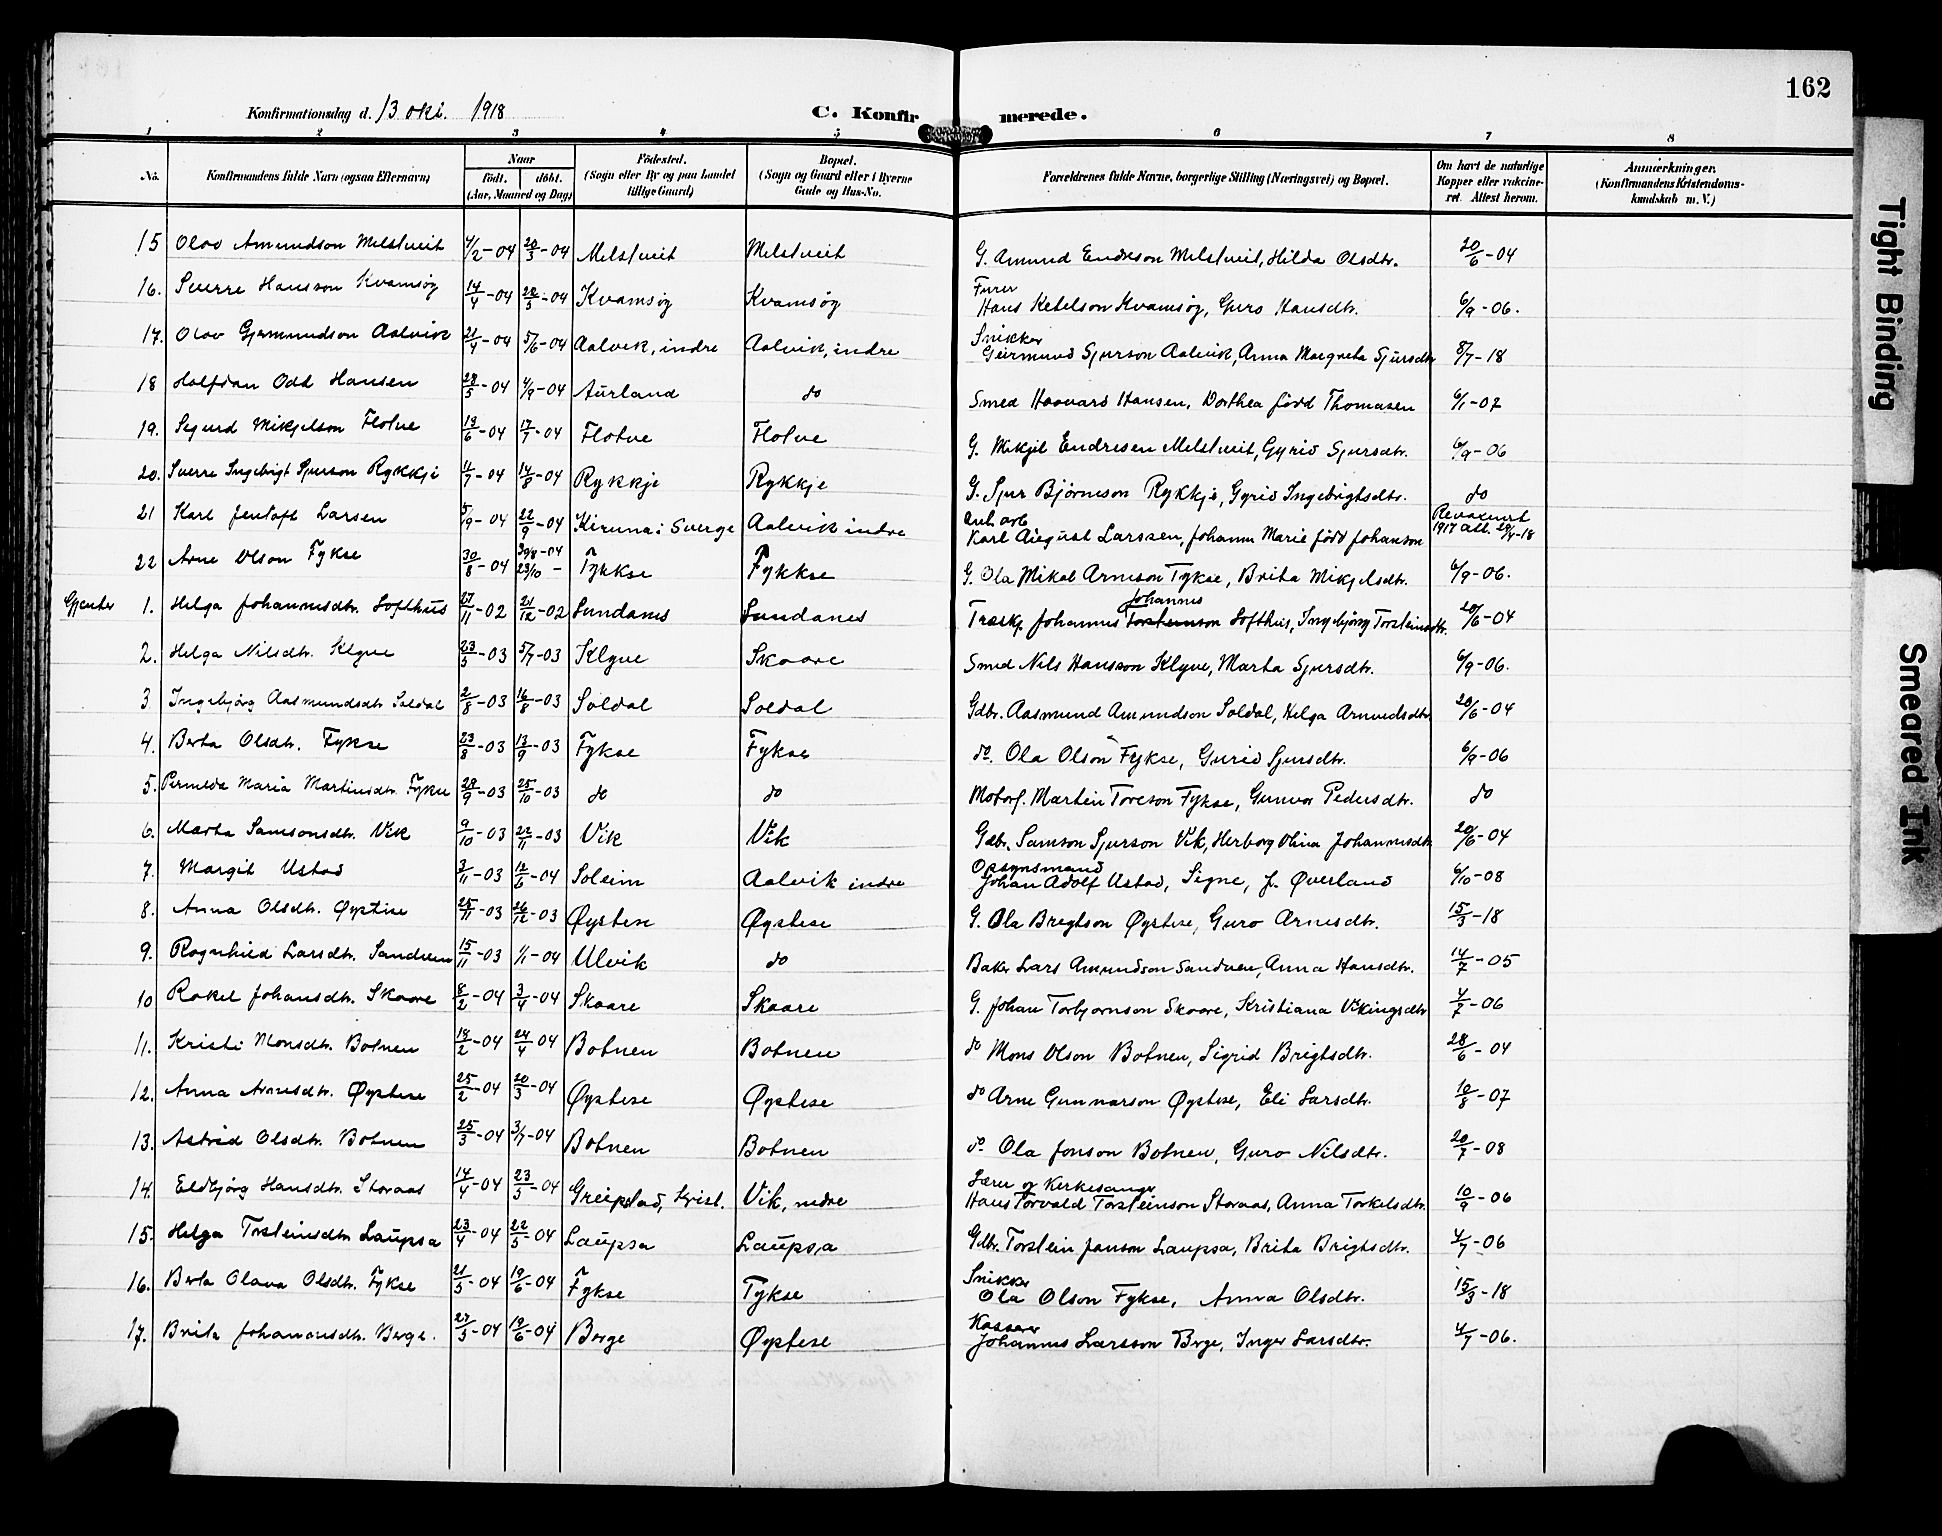 162
Konfirmationsdag d. 13 okt. 1918 C. Konfirmerede.
1 2 3 4 5 6 7 8
No. Konfirmandens fulde Navn (ogsaa Efternavn) Naar født. døbt. (Aar, Maaned og Dag) Fødested. (Sogn eller By og paa Landet tillige Gaard) Bopæl. (Sogn og Gaard eller i Byerne Gade og Hus-No. Forældrenes fulde Navne, borgerlige Stilling (Næringsvei) og Bopæl. Om havt de naturlige Kopper eller vakcineret. Attest herom. Anmærkninger. (Konfirmandens Kristendomskundskab m. V.)
15 Olav Amundson Melstveit 4/2-04 20/3-04 Melstveit Melstveit G. Amund Endreson Melstveit, Hilda Olsdtr. 20/6-04
16. Sverre Hansson Kvamsøy 14/4-04 28/5-04 Kvamsøy Kvamsøy Furer Hans Ketelson Kvamsøy, Guro Hansdtr. 6/9-06.
17. Olav Gjermundson Aalvik 21/4-04 5/6-04 Aalvik, indre Aalvik, indre Snikker Geirmund Sjurson Aalvik, Anna Margreta Sjursdtr 8/7-18
18 Halfdan Odd Hansen 28/5-04 4/9-04 Aurland do Smed Haavard Hansen, Dorthea född Thomasen 6/1-07
19. Sigurd Mikjelson Flotve 13/6-04 17/7-04 Flotve Flotve G. Mikjel Endresen Melstveit, Gyrid Sjursdtr. 6/9-06
20. Sverre Ingebrigt Sjurson Rykkje 11/7-04 14/8-04 Rykkje Rykkje G. Sjur Björneson Rykkje, Gyrid Ingebrigtsdtr. do
21 Karl Jentoft Larsen 5/9-04 22/9-04 Kiruna i Sverge Aalvik indre Anl. arb Karl August Larssen, Johanna Marie född Johanson Revaxinert 1917 att. 29/4-18
22 Arne Olson Fykse 30/8-04 30/8-04 23/10 - Fykkse Fykkse G. Ola Mikal Arneson Fykse, Brita Mikjelsdtr. 6/9-06.
Gjenter 1. Helga Johannesdtr. Softhus 27/11-02 21/12-02 Sundanes Sundanes Træskj. Johannes Torsteinson Johannes Softhus, Ingebjörg Torsteinsdtr. 20/6-04
2. Helga Nilsdtr. Klyve 23/5-03 5/7-03 Klyve Skaare Smed Nils Hansson Klyve, Marta Sjursdtr. 6/9-06.
3 Ingebjörg Aasmundsdtr Soldal 2/8-03 16/8-03 Soldal Soldal Gdbr. Aasmund Amundson Soldal, Helga Arnvedsdtr 20/6-04
4. Berta Olsdtr. Fykse 23/8-03 13/9-03 Fykse Fykse do. Ola Olson Fykse, Gurid Sjursdtr. 6/9-06
5. Pernelda Maria Martinsdtr. Fykse 28/9-03 25/10-03 do do Motorf. Martin Toreson Fykse, Gunvor Pedersdtr. do
6. Marta Samsonsdtr. Vik 9/10-03 22/11-03 Vik Vik Gdbr. Samson Sjurson Vik, Herborg Olina Johannesdtr 20/6-04
7. Margit Ustad 3/11-03 12/6-04 Soleim Aalvik indre Opsynsmand Johan Adolf Ustad, Signe, f. Øverland 6/10-08
8. Anna Olsdtr. Øystese 25/11-03 26/12-03 Øystese Øystese G. Ola Bregtson Øystese, Guro Arnesdtr. 15/3-18
9. Ragnhild Larsdtr. Sandven 15/11-03 1/1-04 Ulvik do Baker Lars Amundson Sandven, Anna Hansdtr. 14/7-05
10 Rakel Johansdtr. Skaare 8/2-04 3/4-04 Skaare Skaare G. Johan Torbjornson Skaare, Kristiana Vikingsdtr 4/7-06
11. Kristi Monsdtr. Botnen 18/2-04 24/4-04 Botnen Botnen do Mons Olson Botnen, Sigrid Brigtsdtr. 28/6-04
12. Anna Arnesdtr. Øystese 25/2-04 20/3-04 Øystese Øystese do Arne Gunnarson Øystese, Eli Larsdtr. 10/8-07
13. Astrid Olsdtr. Botnen 25/3-04 3/7-04 Botnen Botnen do. Ola Jonson Botnen, Guro Nilsdtr. 20/7-08
14. Eldbjörg Hansdtr. Storaas 14/4-04 23/5-04 Greipstad, Krist. Vik, nedre Lærer og Kirkesanger Hans Torvald Torsteinson Storaas, Anna Torkelsdtr. 10/9-06
15. Helga Torsteinsdtr Laupsa 23/4-04 22/5-04 Laupsa Laupsa Gdbr. Torstein Janson Laupsa, Brita Brigtsdtr. 4/7-06
16. Berta Olava Olsdtr. Fykse 21/5-04 19/6-04 Fykse Fykse Snikker Ola Olson Fykse, Anna Olsdtr. 15/3-18
17. Brita Johannesdtr. Berge. 27/5-04 19/6-04 Berge Øystese Kasserer Johannes Larsson Berge, Inger Larsdtr. 4/7-06.
Tight Binding
Smeared Ink